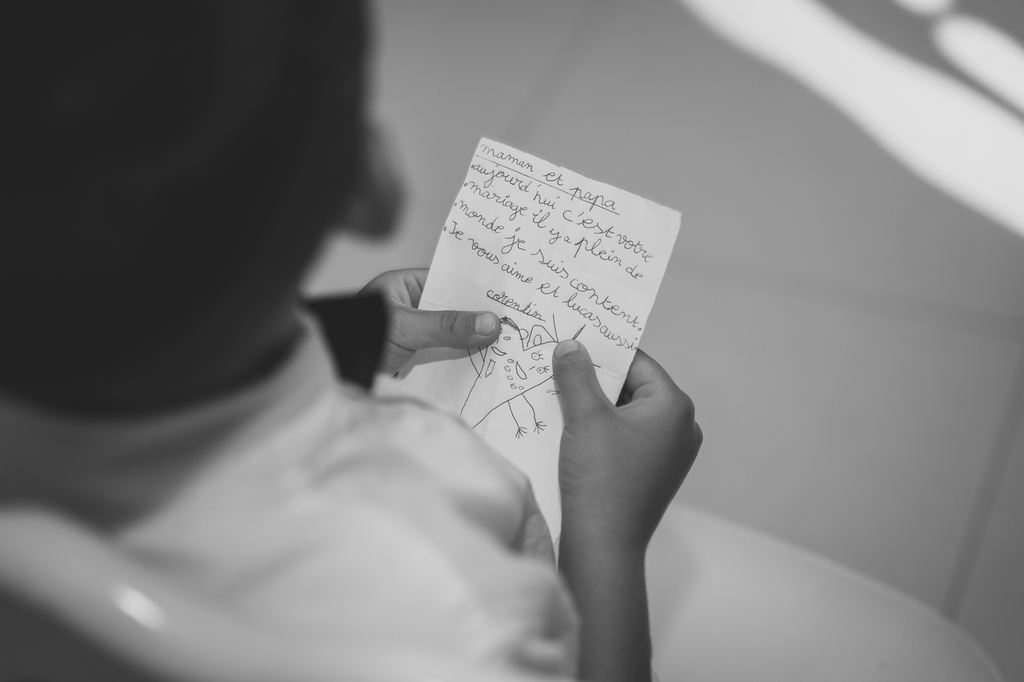 maman et papa
aujourd'hui c'est votre
mariage il y a plein de
monde je suis content.
Je vous aime et lucas aussi.
corentin